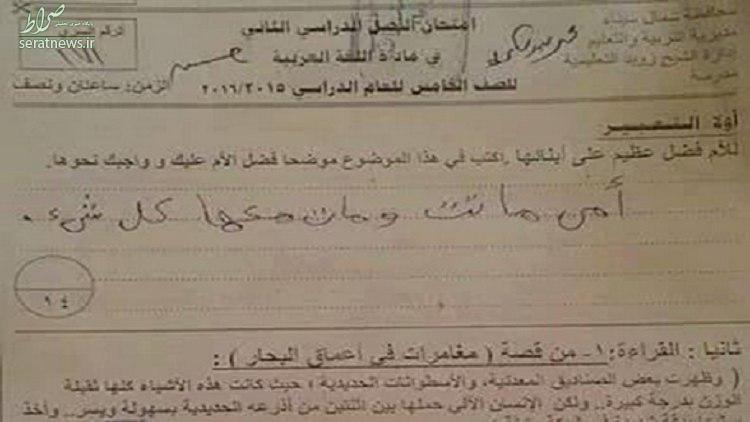 صراط
seratnews.ir
محافظة شمال سيناء
مديرية التربية والتعليم
إدارة الشيخ زويد التعليمية
مدرسة
امتحان الفصل الدراسي الثاني
في مادة اللغة العربية
للصف الخامس للعام الدراسي ٢٠١٦/٢٠١٥
الرقم السرى
الزمن: ساعتان ونصف
أولا التعبير
للأم فضل عظيم على أبنائها. اكتب في هذا الموضوع موضحا فضل الأم عليك و واجبك نحوها.
أمى ماتت ومات معها كل شىء.
ثانيا : القراءة: ١- من قصة ( مغامرات في أعماق البحار ) :
( وظهرت بعض الصناديق المعدنية، والأسطوانات الحديدية ؛ حيث كانت هذه الأشياء كلها ثقيلة
الوزن بدرجة كبيرة.. ولكن الإنسان الآلي حملها بين اثنتين من أذرعه الحديدية بسهولة ويسر.. وأخذ